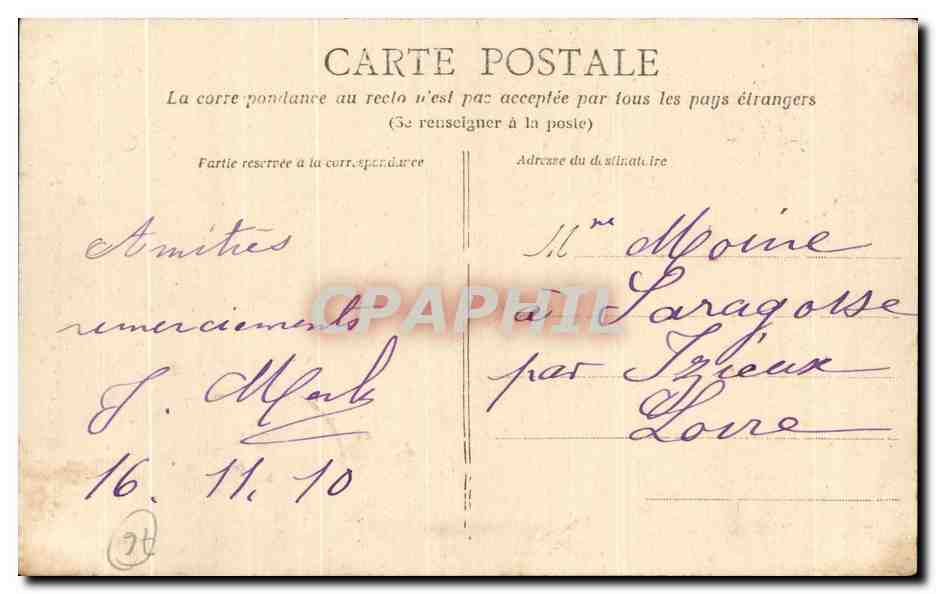 CARTE POSTALE
La correspondance au recto n'est pas acceptée par tous les pays étrangers
(Se renseigner à la poste)
Partie réservée à la correspondance
Adresse du destinataire
Amitiés
remerciements
J. Merk
16. 11. 10
Mme Moine
à Saragosse
par Izieux
Loire
CPAPHIL